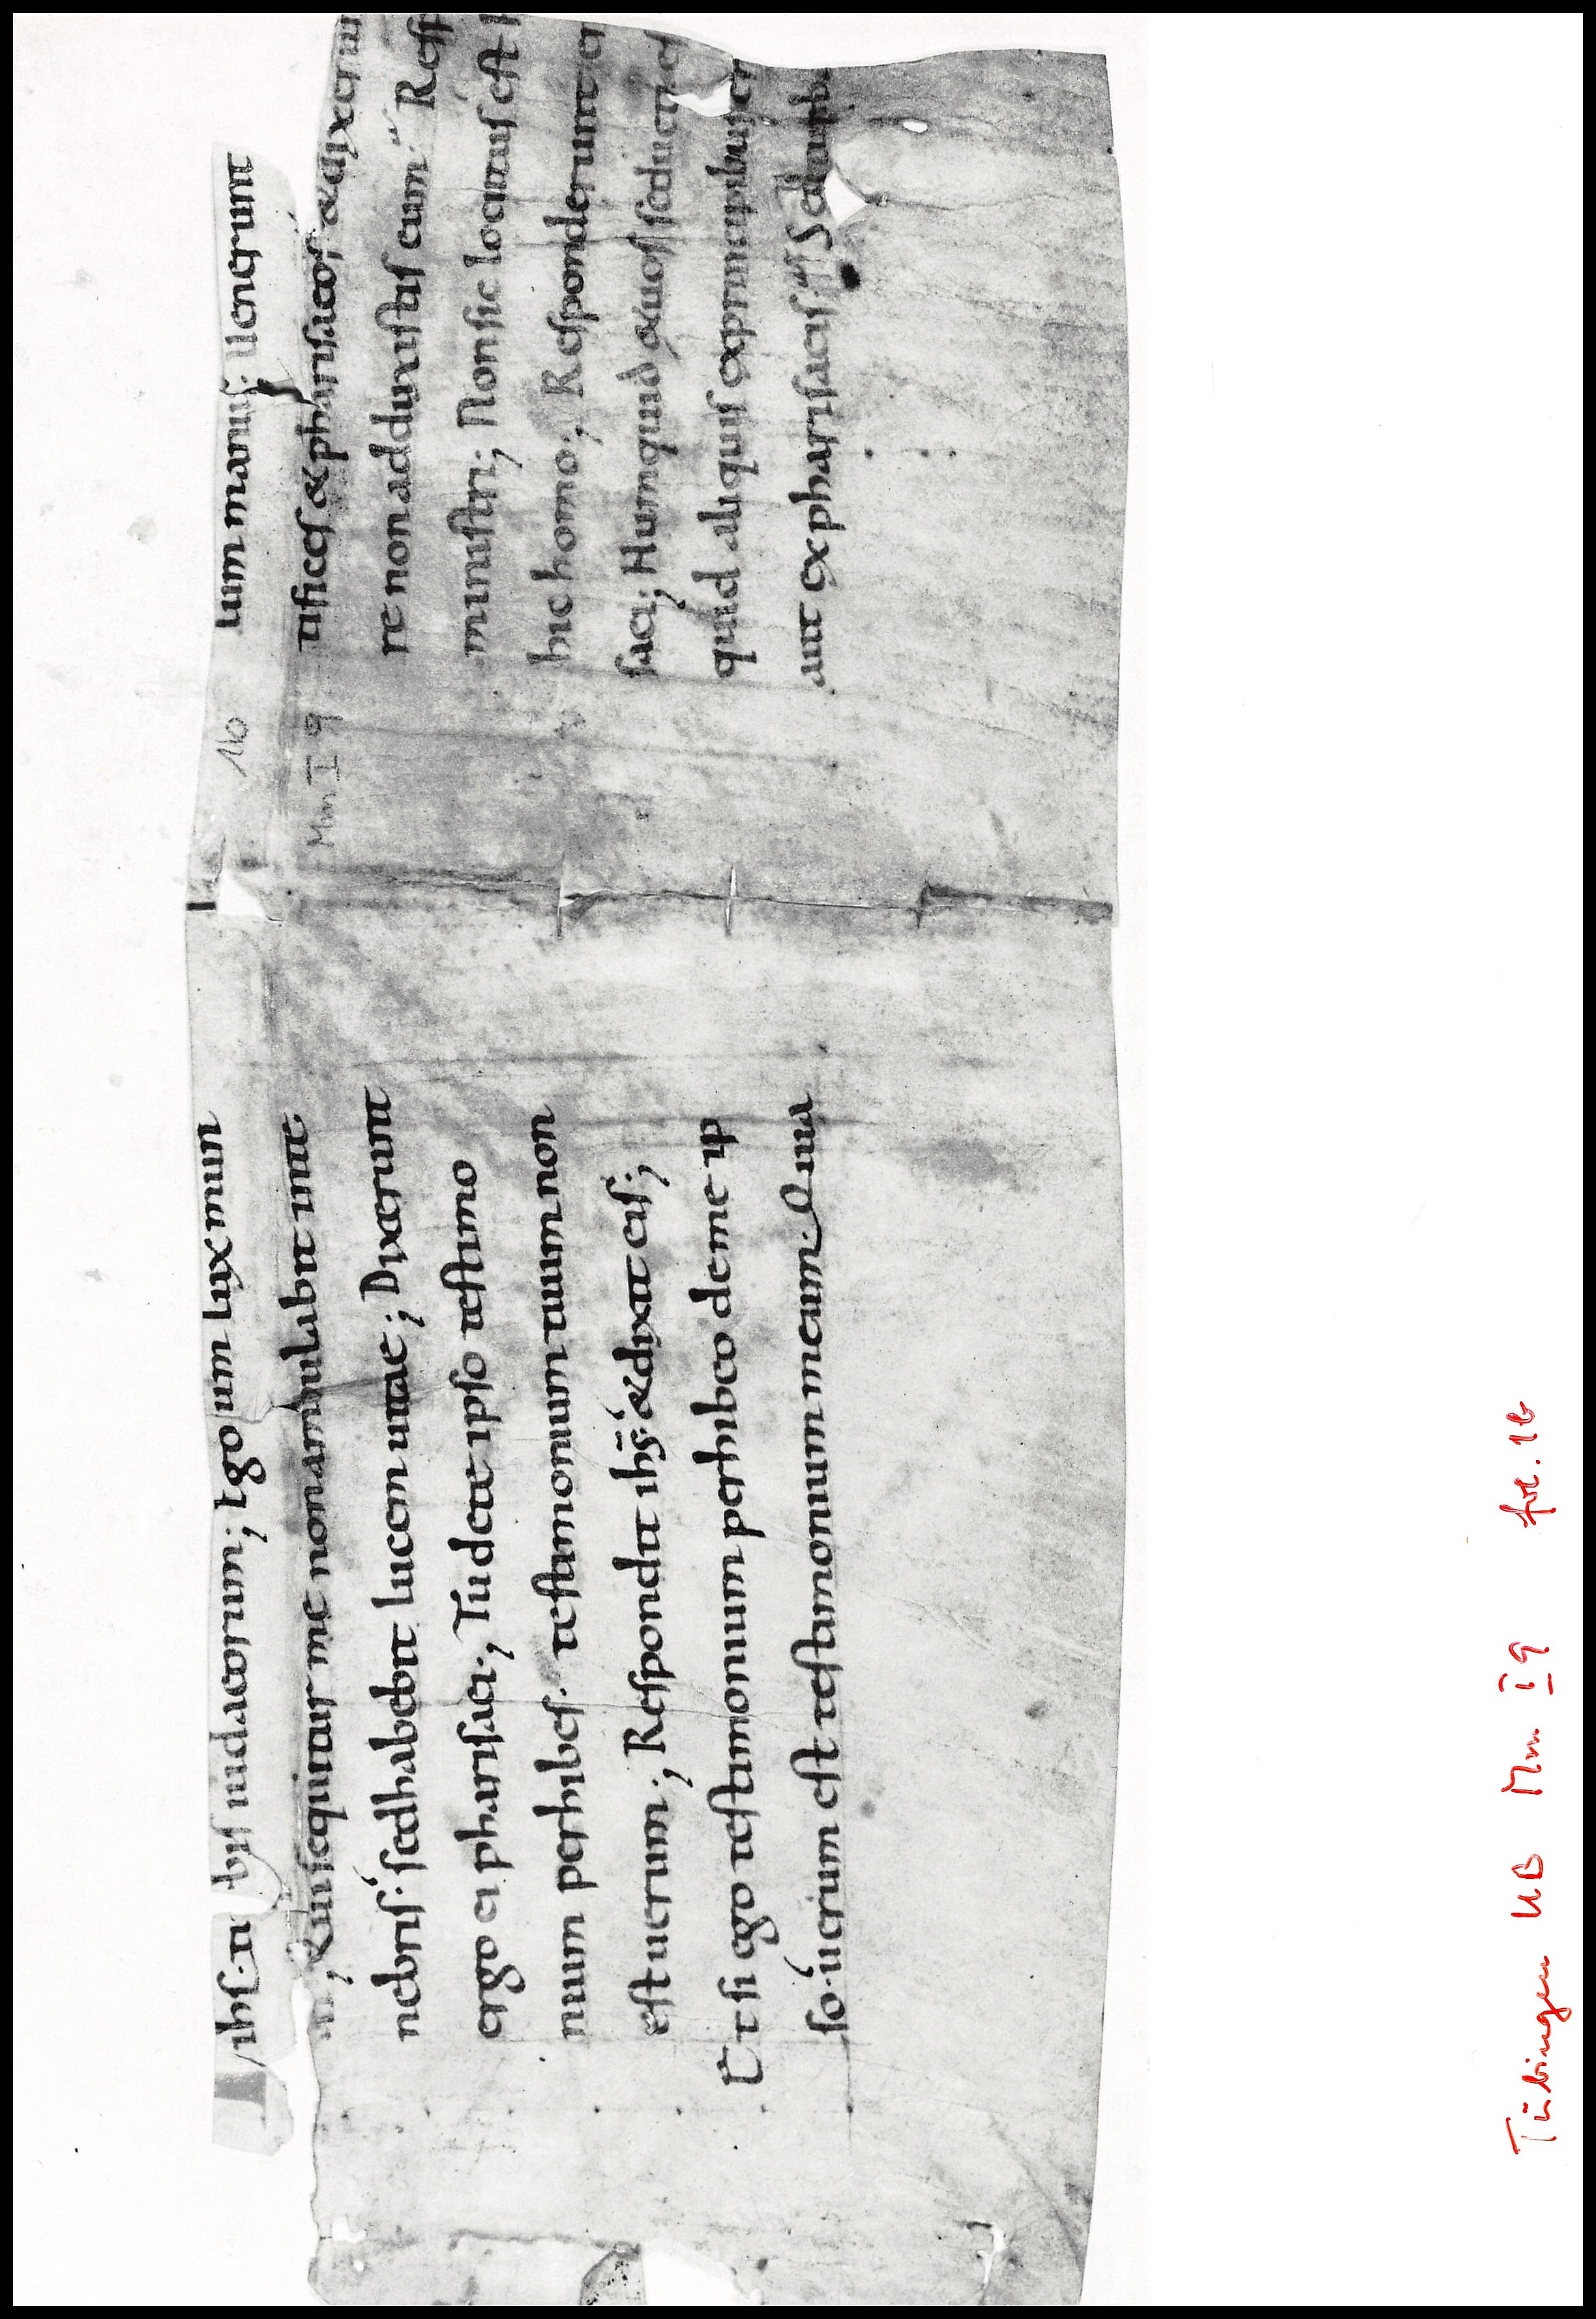 ihs turbis iudaeorum; Ego sum lux mun
di; Qui sequitur me non ambulabit in te
nebris. sed habebit lucem uitae; Dixerunt
ergo ei pharisaei; Tu de te ipso testimo
nium perhibes. testimonium tuum non
est uerum; Respondit ihs. & dixit eis;
Et si ego testimonium perhibeo de me ip
so. uerum est testimonium meum. Quia
lum manus; Uenerunt
tifices & pharisaeos. & dixerun
re non adduxistis eum; Resp
ministri; Non sic locutus est
hic homo; Responderunt er
saei; Numquid & uos seducti es
quid aliquis ex principibus cr
aut ex pharisaeis; Sed
16
Mm I 9
Tübingen UB Mm I 9 fol. 1b